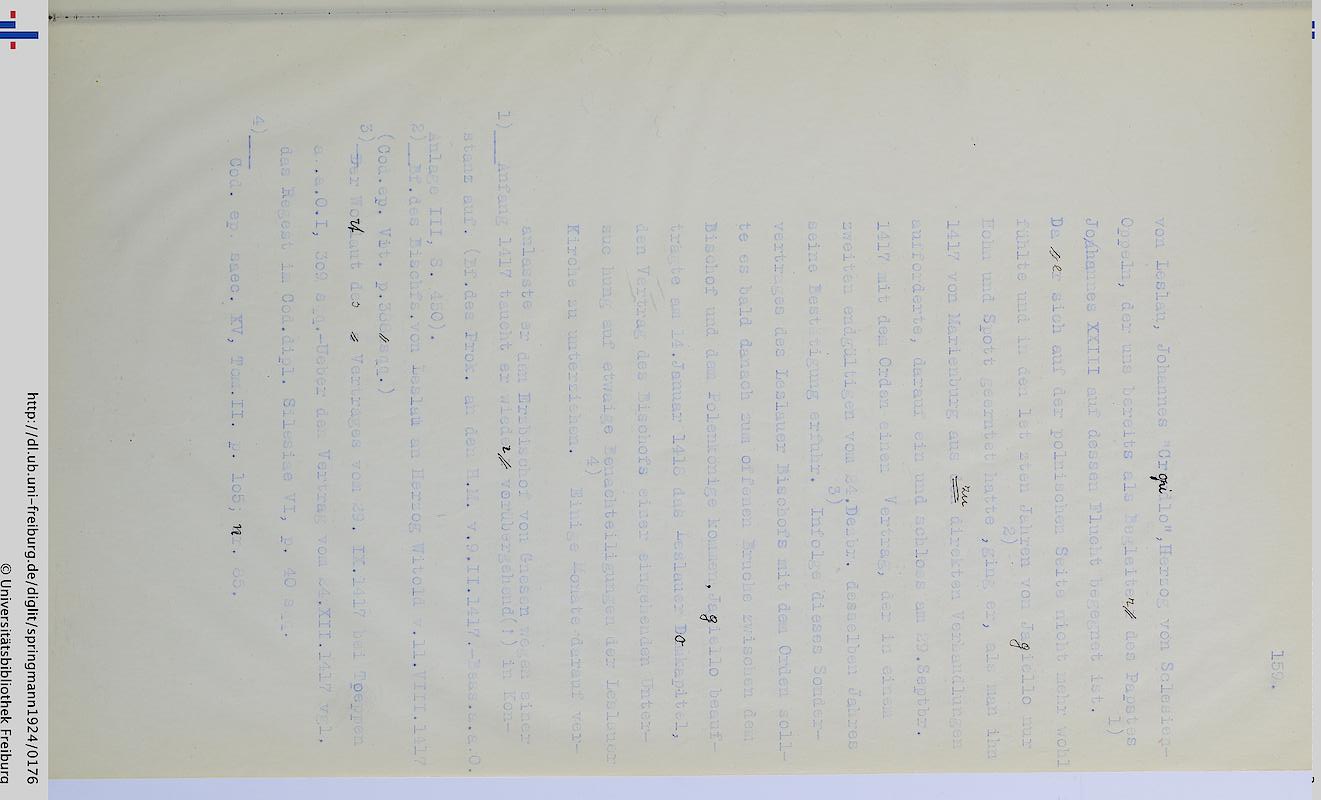 159.
von Leslau, Johannes "Cropilo", Herzog von Schlesien-
Oppeln, der uns bereits als Begleiter des Papstes
Johannes XXIII auf dessen Flucht begegnet ist. 1)
Da er sich auf der polnischen Seite nicht mehr wohl
fühlte und in den letzten Jahren von Jagiello nur
Hohn und Spott geerntet hatte 2), ging er, als man ihn
1417 von Marienburg aus zu direkten Verhandlungen
aufforderte, darauf ein und schloss am 29.Septbr.
1417 mit dem Orden einen Vertrag, der in einem
zweiten endgültigen vom 24.Dezbr. desselben Jahres
seine Bestätigung erfuhr. 3) Infolge dieses Sonder-
vertrages des Leslauer Bischofs mit dem Orden soll-
te es bald danach zum offenen Bruche zwischen dem
Bischof und dem Polenkönige kommen, Jagiello beauf-
tragte am 14.Januar 1418 das Leslauer Domkapitel,
den Vertrag des Bischofs einer eingehenden Unter-
suchung auf etwaige Benachteiligungen der Leslauer
Kirche zu unterziehen. 4) Einige Monate darauf ver-
anlasste er den Erzbischof von Gnesen wegen seiner
1) Anfang 1417 taucht er wieder vorübergehend(!) in Kon-
stanz auf. (Br.des Prok. an den H.M. v.9.II.1417.-Bess.a.a.O.
Anlage III, S. 450).
2) Bf.des Bischfs.von Leslau an Herzog Witold v.11.VIII.1417
(Cod.ep. Vit. p. sqq.)
3) Der Wortlaut des Vertrages vom 29. IX.1417 bei Toeppen
a.a.O.I, 302 sq.-Ueber den Vertrag vom 24.XII.1417 vgl.
das Regest im Cod.dipl. Silesiae VI, p. 40
4) Cod. ep. saec. XV, Tom.II. p. 105; nr. 85.
http://dl.ub.uni-freiburg.de/diglit/springmann1924/0176
© Universitätsbibliothek Freiburg